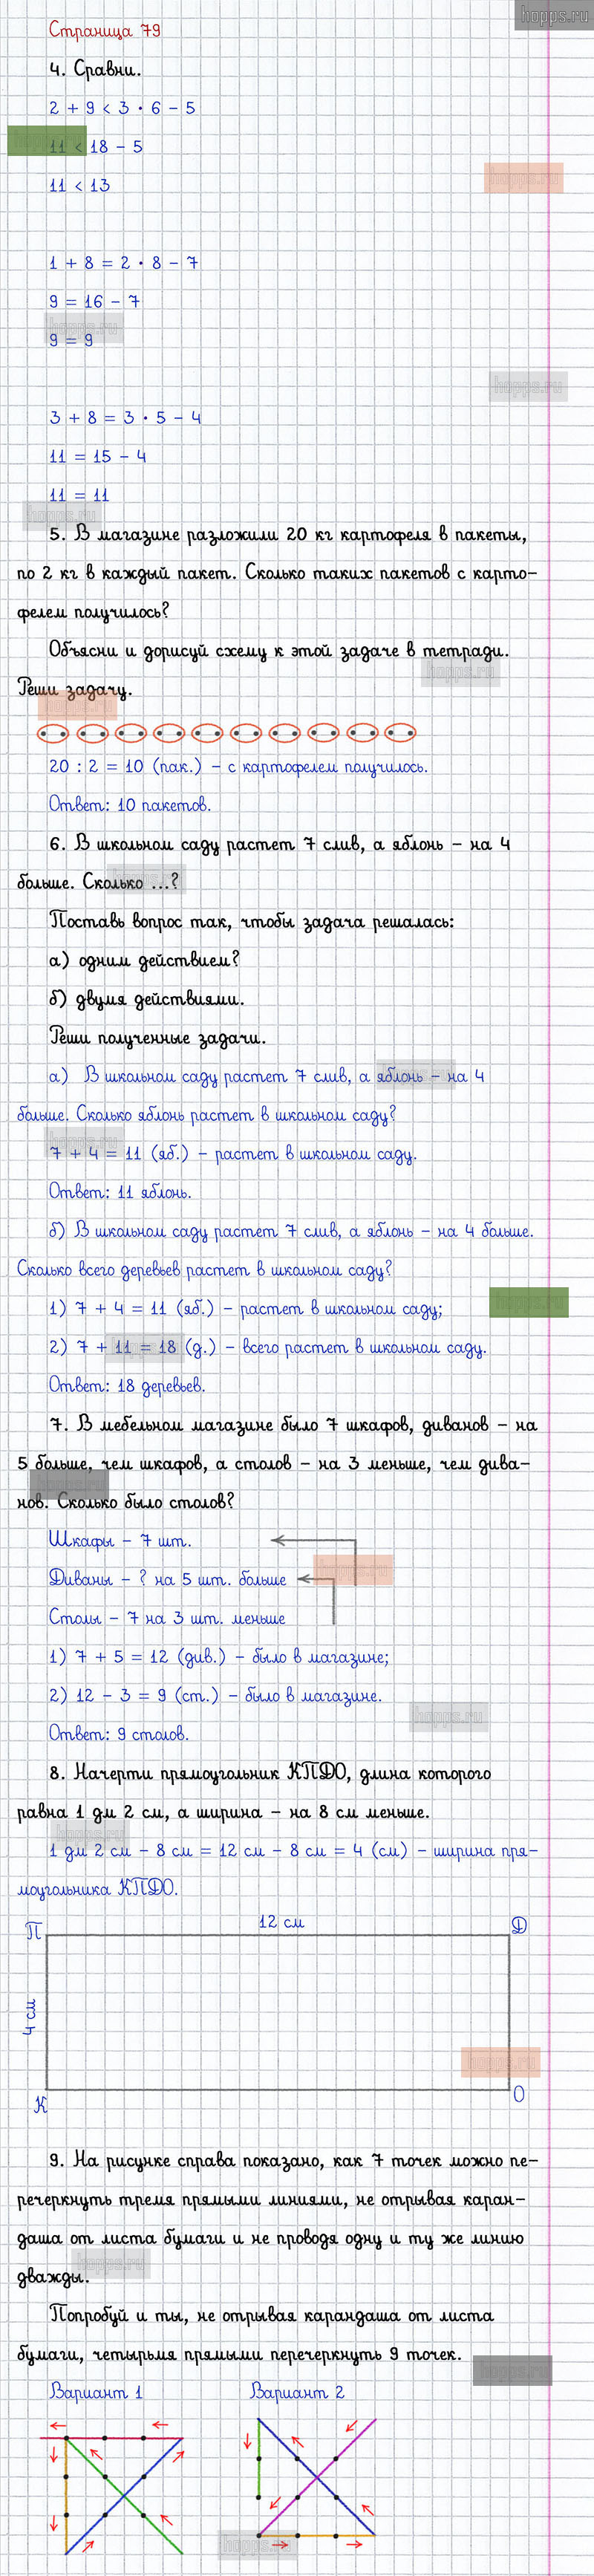 hopps.ru
Страница 79
4. Сравни.
2 + 9 < 3 · 6 - 5
11 < 18 - 5
11 < 13
1 + 8 = 2 · 8 - 7
9 = 16 - 7
9 = 9
3 + 8 = 3 · 5 - 4
11 = 15 - 4
11 = 11
5. В магазине разложили 20 кг картофеля в пакеты,
по 2 кг в каждый пакет. Сколько таких пакетов с карто-
фелем получилось?
Объясни и дорисуй схему к этой задаче в тетради.
Реши задачу.
20 : 2 = 10 (пак.) - с картофелем получилось.
Ответ: 10 пакетов.
6. В школьном саду растет 7 слив, а яблонь - на 4
больше. Сколько ...?
Поставь вопрос так, чтобы задача решалась:
а) одним действием?
б) двумя действиями.
Реши полученные задачи.
а) В школьном саду растет 7 слив, а яблонь - на 4
больше. Сколько яблонь растет в школьном саду?
7 + 4 = 11 (яб.) - растет в школьном саду.
Ответ: 11 яблонь.
б) В школьном саду растет 7 слив, а яблонь - на 4 больше.
Сколько всего деревьев растет в школьном саду?
1) 7 + 4 = 11 (яб.) - растет в школьном саду;
2) 7 + 11 = 18 (д.) - всего растет в школьном саду.
Ответ: 18 деревьев.
7. В мебельном магазине было 7 шкафов, диванов - на
5 больше, чем шкафов, а столов - на 3 меньше, чем дива-
нов. Сколько было столов?
Шкафы - 7 шт.
Диваны - ? на 5 шт. больше
Столы - 7 на 3 шт. меньше
1) 7 + 5 = 12 (див.) - было в магазине;
2) 12 - 3 = 9 (ст.) - было в магазине.
Ответ: 9 столов.
8. Начерти прямоугольник КПДО, длина которого
равна 1 дм 2 см, а ширина - на 8 см меньше.
1 дм 2 см - 8 см = 12 см - 8 см = 4 (см) - ширина пря-
моугольника КПДО.
П 12 см Д
4 см
К О
9. На рисунке справа показано, как 7 точек можно пе-
речеркнуть тремя прямыми линиями, не отрывая каран-
даша от листа бумаги и не проводя одну и ту же линию
дважды.
Попробуй и ты, не отрывая карандаша от листа
бумаги, четырьмя прямыми перечеркнуть 9 точек.
Вариант 1 Вариант 2